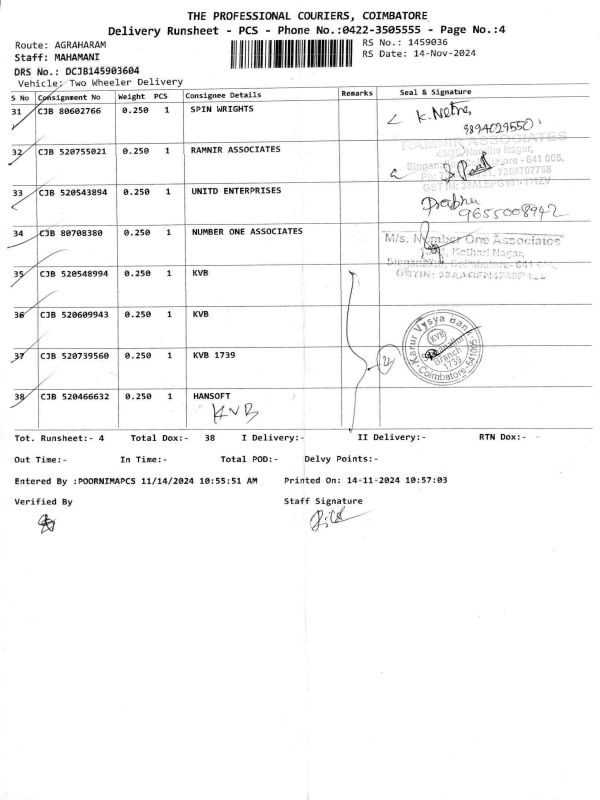 THE PROFESSIONAL COURIERS, COIMBATORE
Delivery Runsheet - PCS - Phone No.:0422-3505555 - Page No.:4
Route: AGRAHARAM
RS No.: 1459036
Staff: MAHAMANI
RS Date: 14-Nov-2024
DRS No.: DCJB145903604
Vehicle: Two Wheeler Delivery
S No Consignment No Weight PCS Consignee Details Remarks Seal & Signature
31 CJB 80602766 0.250 1 SPIN WRIGHTS K. Netra
9894029550
32 CJB 520755021 0.250 1 RAMNIR ASSOCIATES
RAMNIR ASSOCIATES
33 CJB 520543894 0.250 1 UNITD ENTERPRISES Prabhu
9655008942
34 CJB 80708380 0.250 1 NUMBER ONE ASSOCIATES
M/s. Number One Associates
Kothari Nagar,
35 CJB 520548994 0.250 1 KVB
36 CJB 520609943 0.250 1 KVB
Karur Vysya Bank
KVB
Branch
1739
Coimbatore-641005
37 CJB 520739560 0.250 1 KVB 1739
38 CJB 520466632 0.250 1 HANSOFT
KVB
Tot. Runsheet:- 4 Total Dox:- 38 I Delivery:- II Delivery:- RTN Dox:- -
Out Time:- In Time:- Total POD:- Delvy Points:-
Entered By :POORNIMAPCS 11/14/2024 10:55:51 AM Printed On: 14-11-2024 10:57:03
Verified By Staff Signature